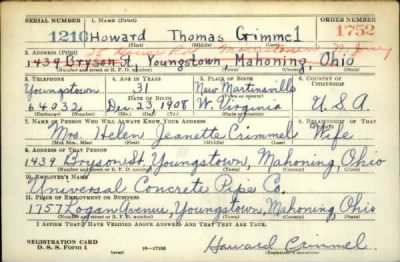 SERIAL NUMBER 1. NAME (Print) ORDER NUMBER
1210 Howard Thomas Crimmel 1752
(First) (Middle) (Last)
2. ADDRESS (Print)
1439 Bryson St, Youngstown, Mahoning, Ohio
(Number and street or R. F. D. number) (Town) (County) (State)
3. TELEPHONE 4. AGE IN YEARS 5. PLACE OF BIRTH 6. COUNTRY OF CITIZENSHIP
Youngstown 31 New Martinsville
DATE OF BIRTH (Town or county)
64032 Dec 23 1908 W. Virginia U.S.A.
(Exchange) (Number) (Mo.) (Day) (Yr.) (State or country)
7. NAME OF PERSON WHO WILL ALWAYS KNOW YOUR ADDRESS 8. RELATIONSHIP OF THAT PERSON
Mrs. Helen Jeanette Crimmel Wife
(Mr., Mrs., Miss) (First) (Middle) (Last)
9. ADDRESS OF THAT PERSON
1439 Bryson St, Youngstown, Mahoning, Ohio
(Number and street or R. F. D. number) (Town) (County) (State)
10. EMPLOYER'S NAME
Universal Concrete Pipe Co.
11. PLACE OF EMPLOYMENT OR BUSINESS
1757 Logan Avenue, Youngstown, Mahoning, Ohio
(Number and street or R. F. D. number) (Town) (County) (State)
I AFFIRM THAT I HAVE VERIFIED ABOVE ANSWERS AND THAT THEY ARE TRUE.
REGISTRATION CARD
D. S. S. Form 1 (over) 16-17105 Howard Crimmel